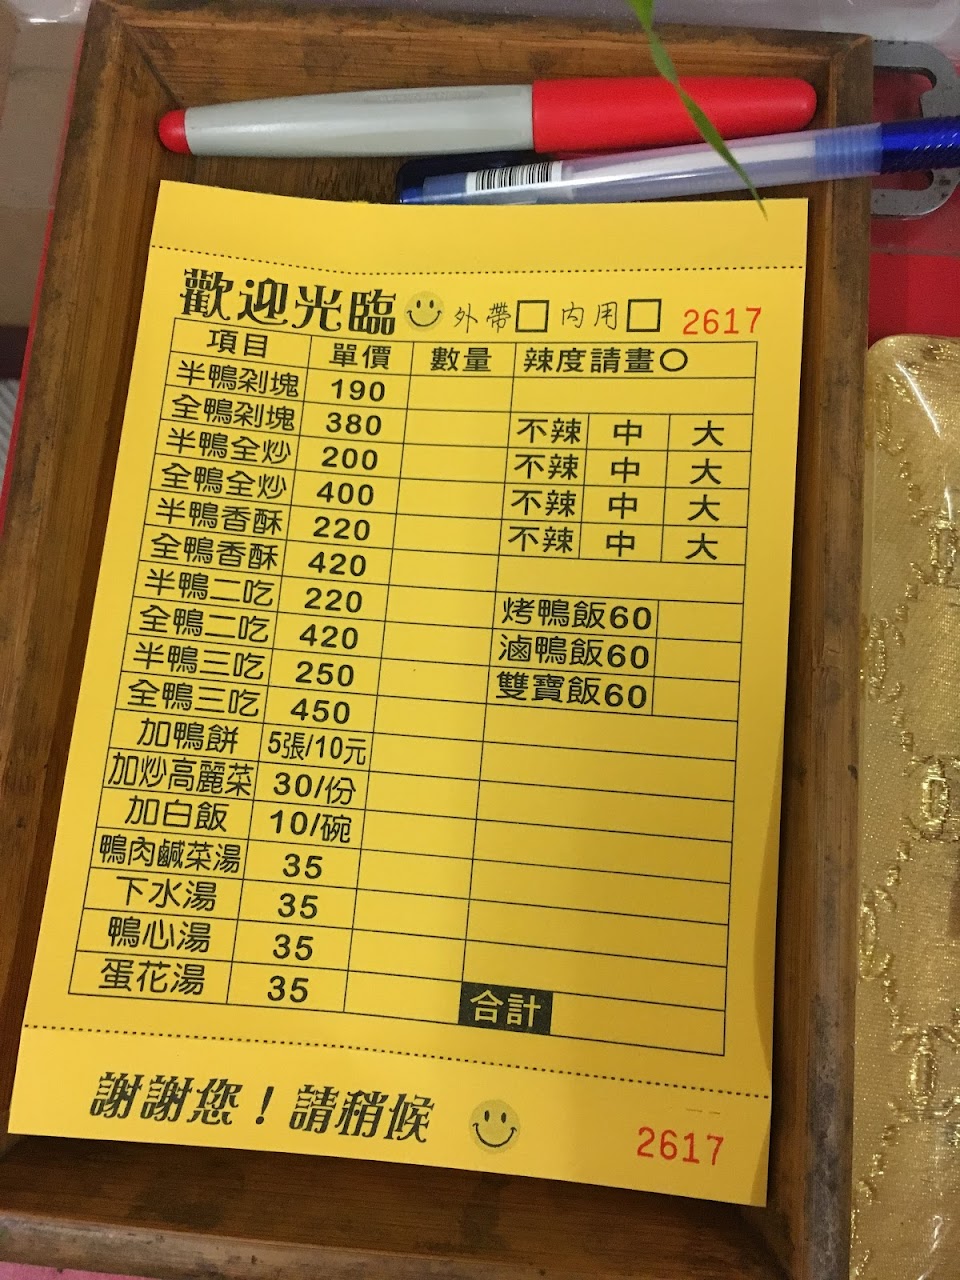 歡迎光臨 外帶□ 內用□ 2617
項目 單價 數量 辣度請畫○
半鴨剁塊 190
全鴨剁塊 380 不辣 中 大
半鴨全炒 200 不辣 中 大
全鴨全炒 400 不辣 中 大
半鴨香酥 220 不辣 中 大
全鴨香酥 420
半鴨二吃 220 烤鴨飯60
全鴨二吃 420 滷鴨飯60
半鴨三吃 250 雙寶飯60
全鴨三吃 450
加鴨餅 5張/10元
加炒高麗菜 30/份
加白飯 10/碗
鴨肉鹹菜湯 35
下水湯 35
鴨心湯 35
蛋花湯 35 合計
謝謝您！請稍候 2617